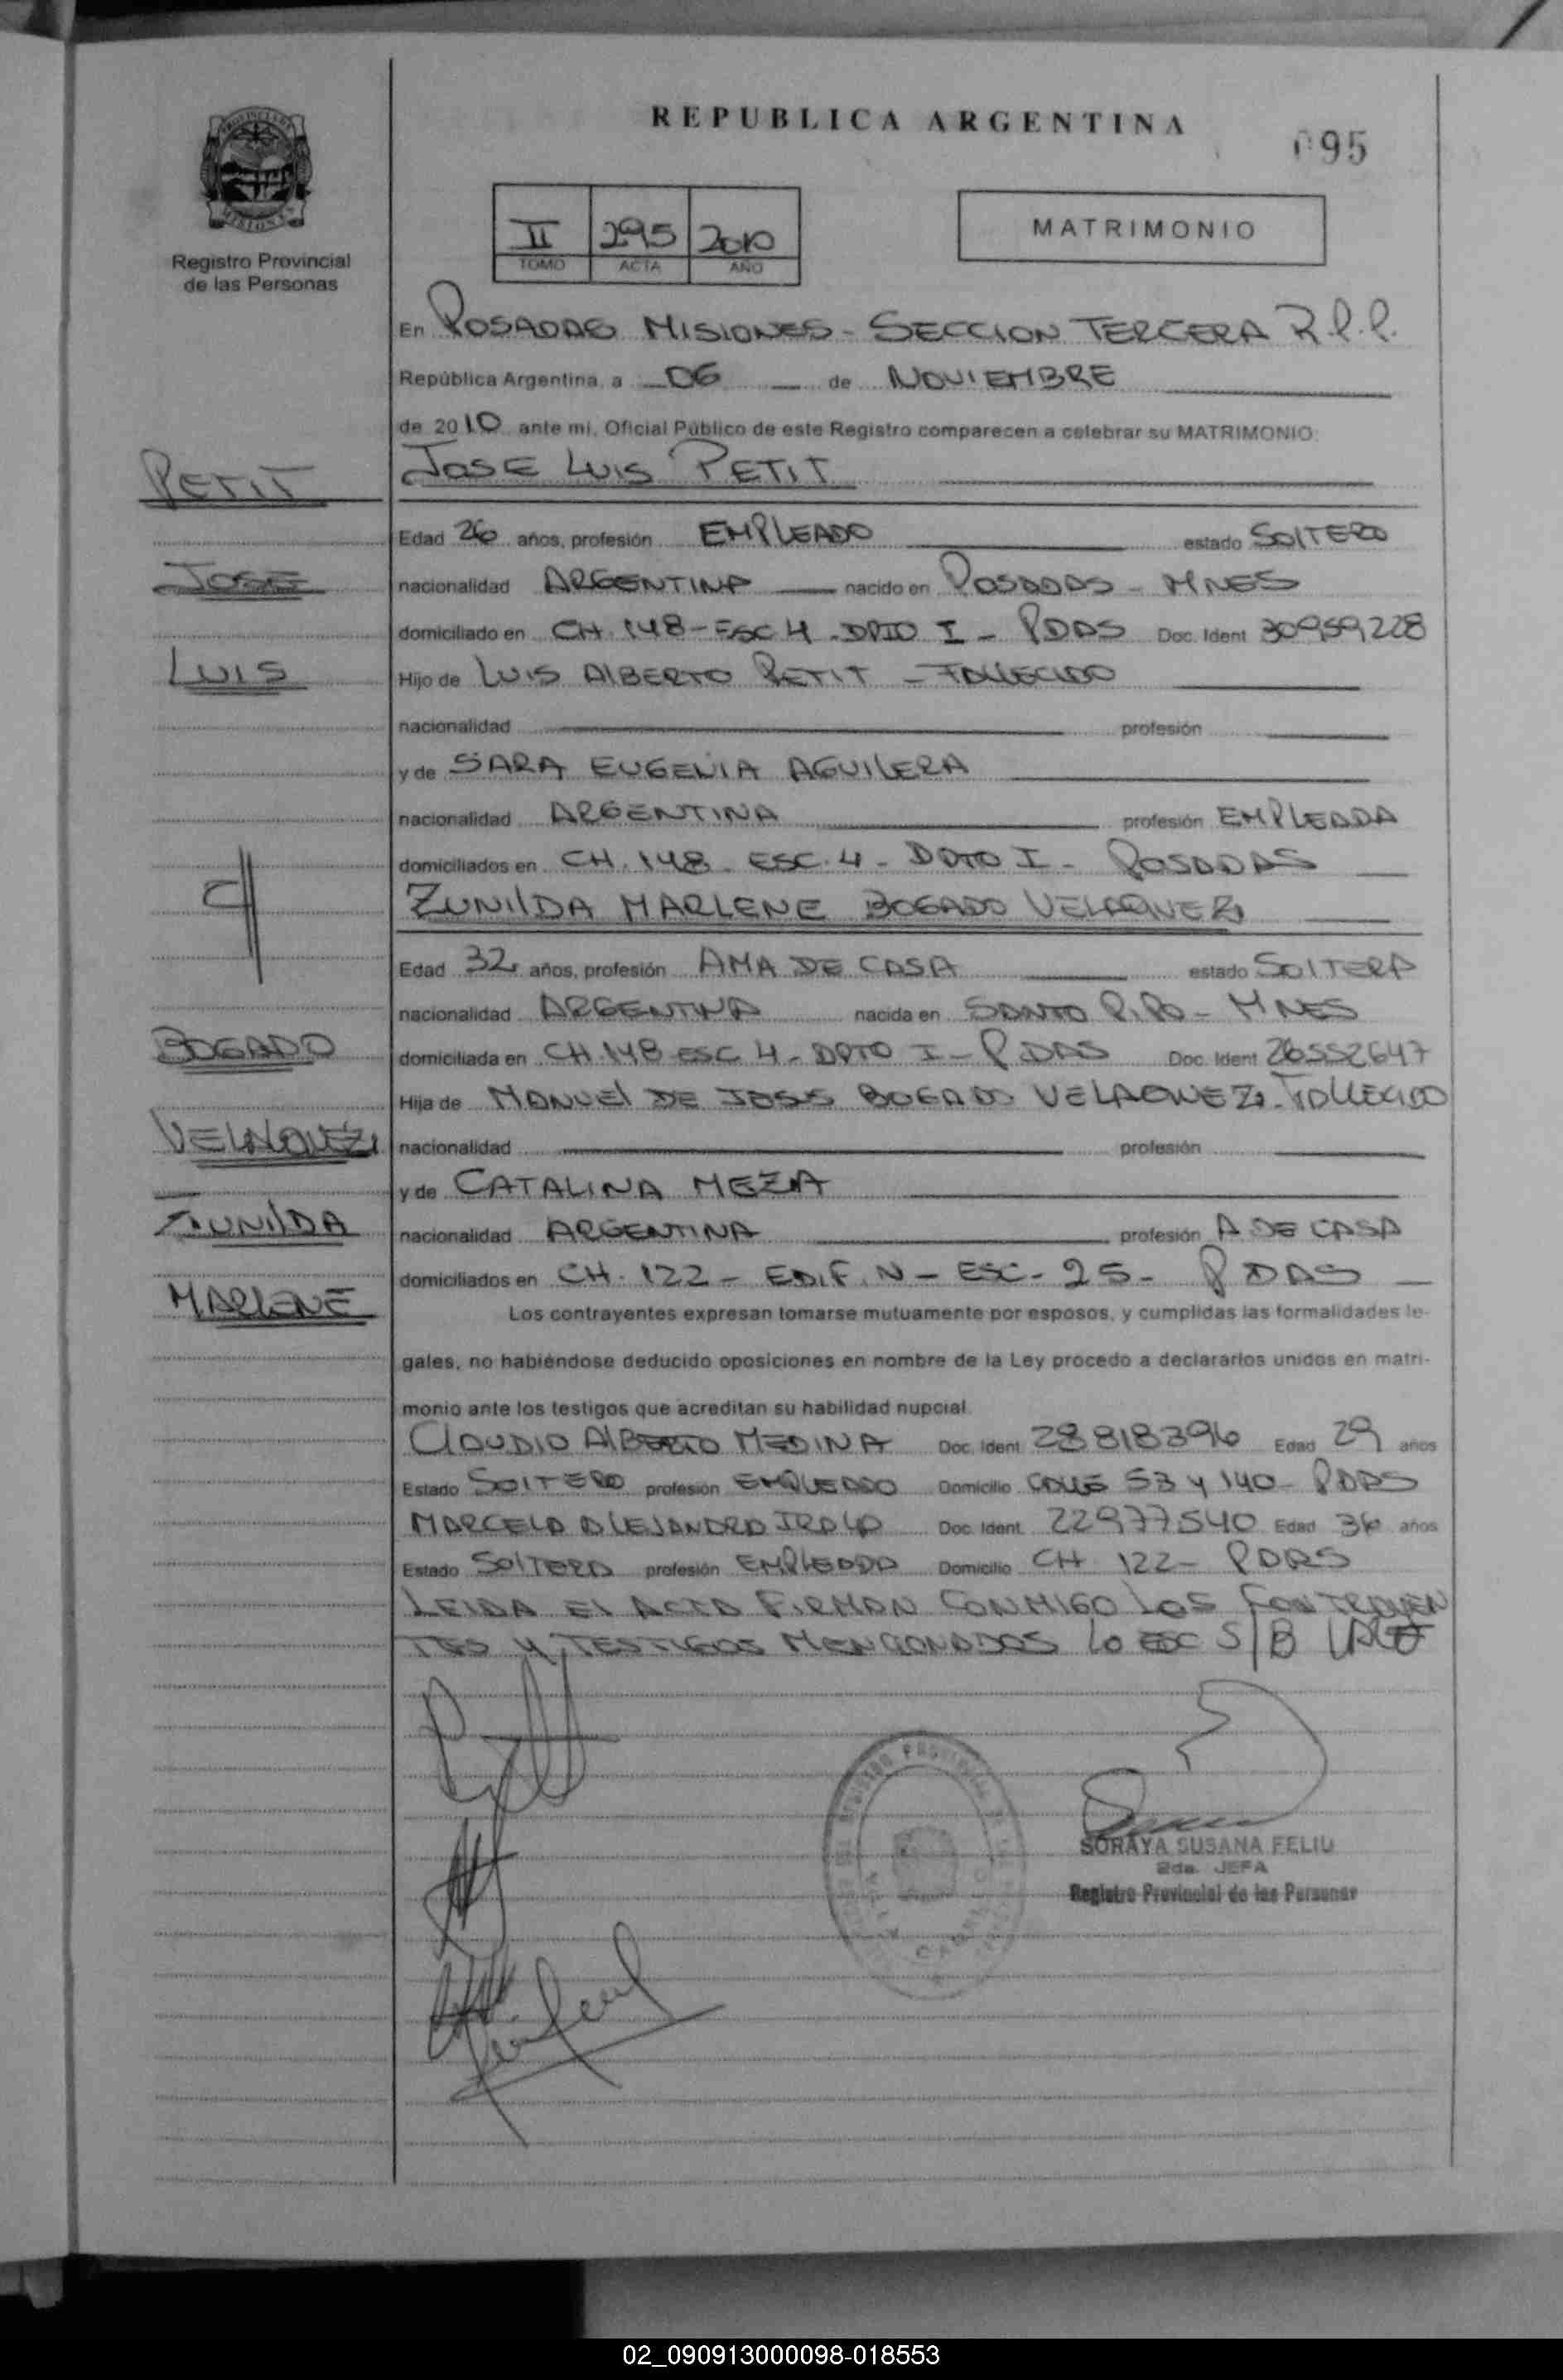 REPUBLICA ARGENTINA
095
Registro Provincial
de las Personas
II 295 2010
TOMO ACTA AÑO
MATRIMONIO
En POSADAS MISIONES - SECCION TERCERA R.P.P.
República Argentina, a 06 de NOVIEMBRE
de 2010 ante mi, Oficial Público de este Registro comparecen a celebrar su MATRIMONIO:
PETIT
JOSE LUIS PETIT
Edad 26 años, profesión EMPLEADO estado SOLTERO
JOSE
nacionalidad ARGENTINA nacido en POSADAS - MNES
domiciliado en CH. 148 - ESC 4 - DPTO I - PDAS Doc. Ident 30959228
LUIS
Hijo de LUIS ALBERTO PETIT - FALLECIDO
nacionalidad profesión
y de SARA EUGENIA AGUILERA
nacionalidad ARGENTINA profesión EMPLEADA
domiciliados en CH. 148 - ESC. 4 - DPTO I - POSADAS
C/
ZUNILDA MARLENE BOGADO VELAQUEZ
Edad 32 años, profesión AMA DE CASA estado SOLTERA
nacionalidad ARGENTINA nacida en SANTO PIPO - MNES
BOGADO
domiciliada en CH. 148 ESC 4 - DPTO I - PDAS Doc. Ident 26552647
Hija de MANUEL DE JESUS BOGADO VELAQUEZ - FALLECIDO
VELAQUEZ
nacionalidad profesión
y de CATALINA MEZA
ZUNILDA
nacionalidad ARGENTINA profesión A DE CASA
domiciliados en CH. 122 - EDIF. N - ESC - 25 - PDAS
MARLENE
Los contrayentes expresan tomarse mutuamente por esposos, y cumplidas las formalidades le-
gales, no habiéndose deducido oposiciones en nombre de la Ley procedo a declararlos unidos en matri-
monio ante los testigos que acreditan su habilidad nupcial.
CLAUDIO ALBERTO MEDINA Doc. Ident 28818396 Edad 29 años
Estado SOLTERO profesión EMPLEADO Domicilio CALLE 53 y 140 - PDAS
MARCELA ALEJANDRA IRALA Doc. Ident. 22977540 Edad 36 años
Estado SOLTERA profesión EMPLEADA Domicilio CH 122 - PDAS
LEIDA EL ACTA FIRMAN CONMIGO LOS CONTRAYEN
TES Y TESTIGOS MENCIONADOS LO ESC S/B VALE
SORAYA SUSANA FELIU
2da. JEFA
Registro Provincial de las Personas
02_090913000098-018553